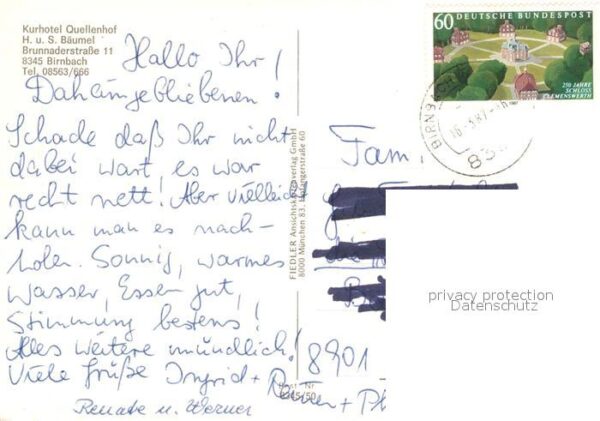 Kurhotel Quellenhof
H. u. S. Bäumel
Brunnaderstraße 11
8345 Birnbach
Tel. 08563/666
Hallo Ihr
Daheimgebliebenen!
Schade daß Ihr nicht
dabei wart, es war
recht nett! Aber vielleicht
kann man es nach-
holen. Sonnig, warmes
Wasser, Essen gut,
Stimmung bestens!
Alles weitere mündlich!
Viele Grüße Ingrid +
Renate u. Werner
FIEDLER Ansichtskartenverlag GmbH
8000 München 83,
60 DEUTSCHE BUNDESPOST
250 JAHRE
SCHLOSS
CLEMENSWERTH
BIRNBACH
Fam.
8901
privacy protection
Datenschutz